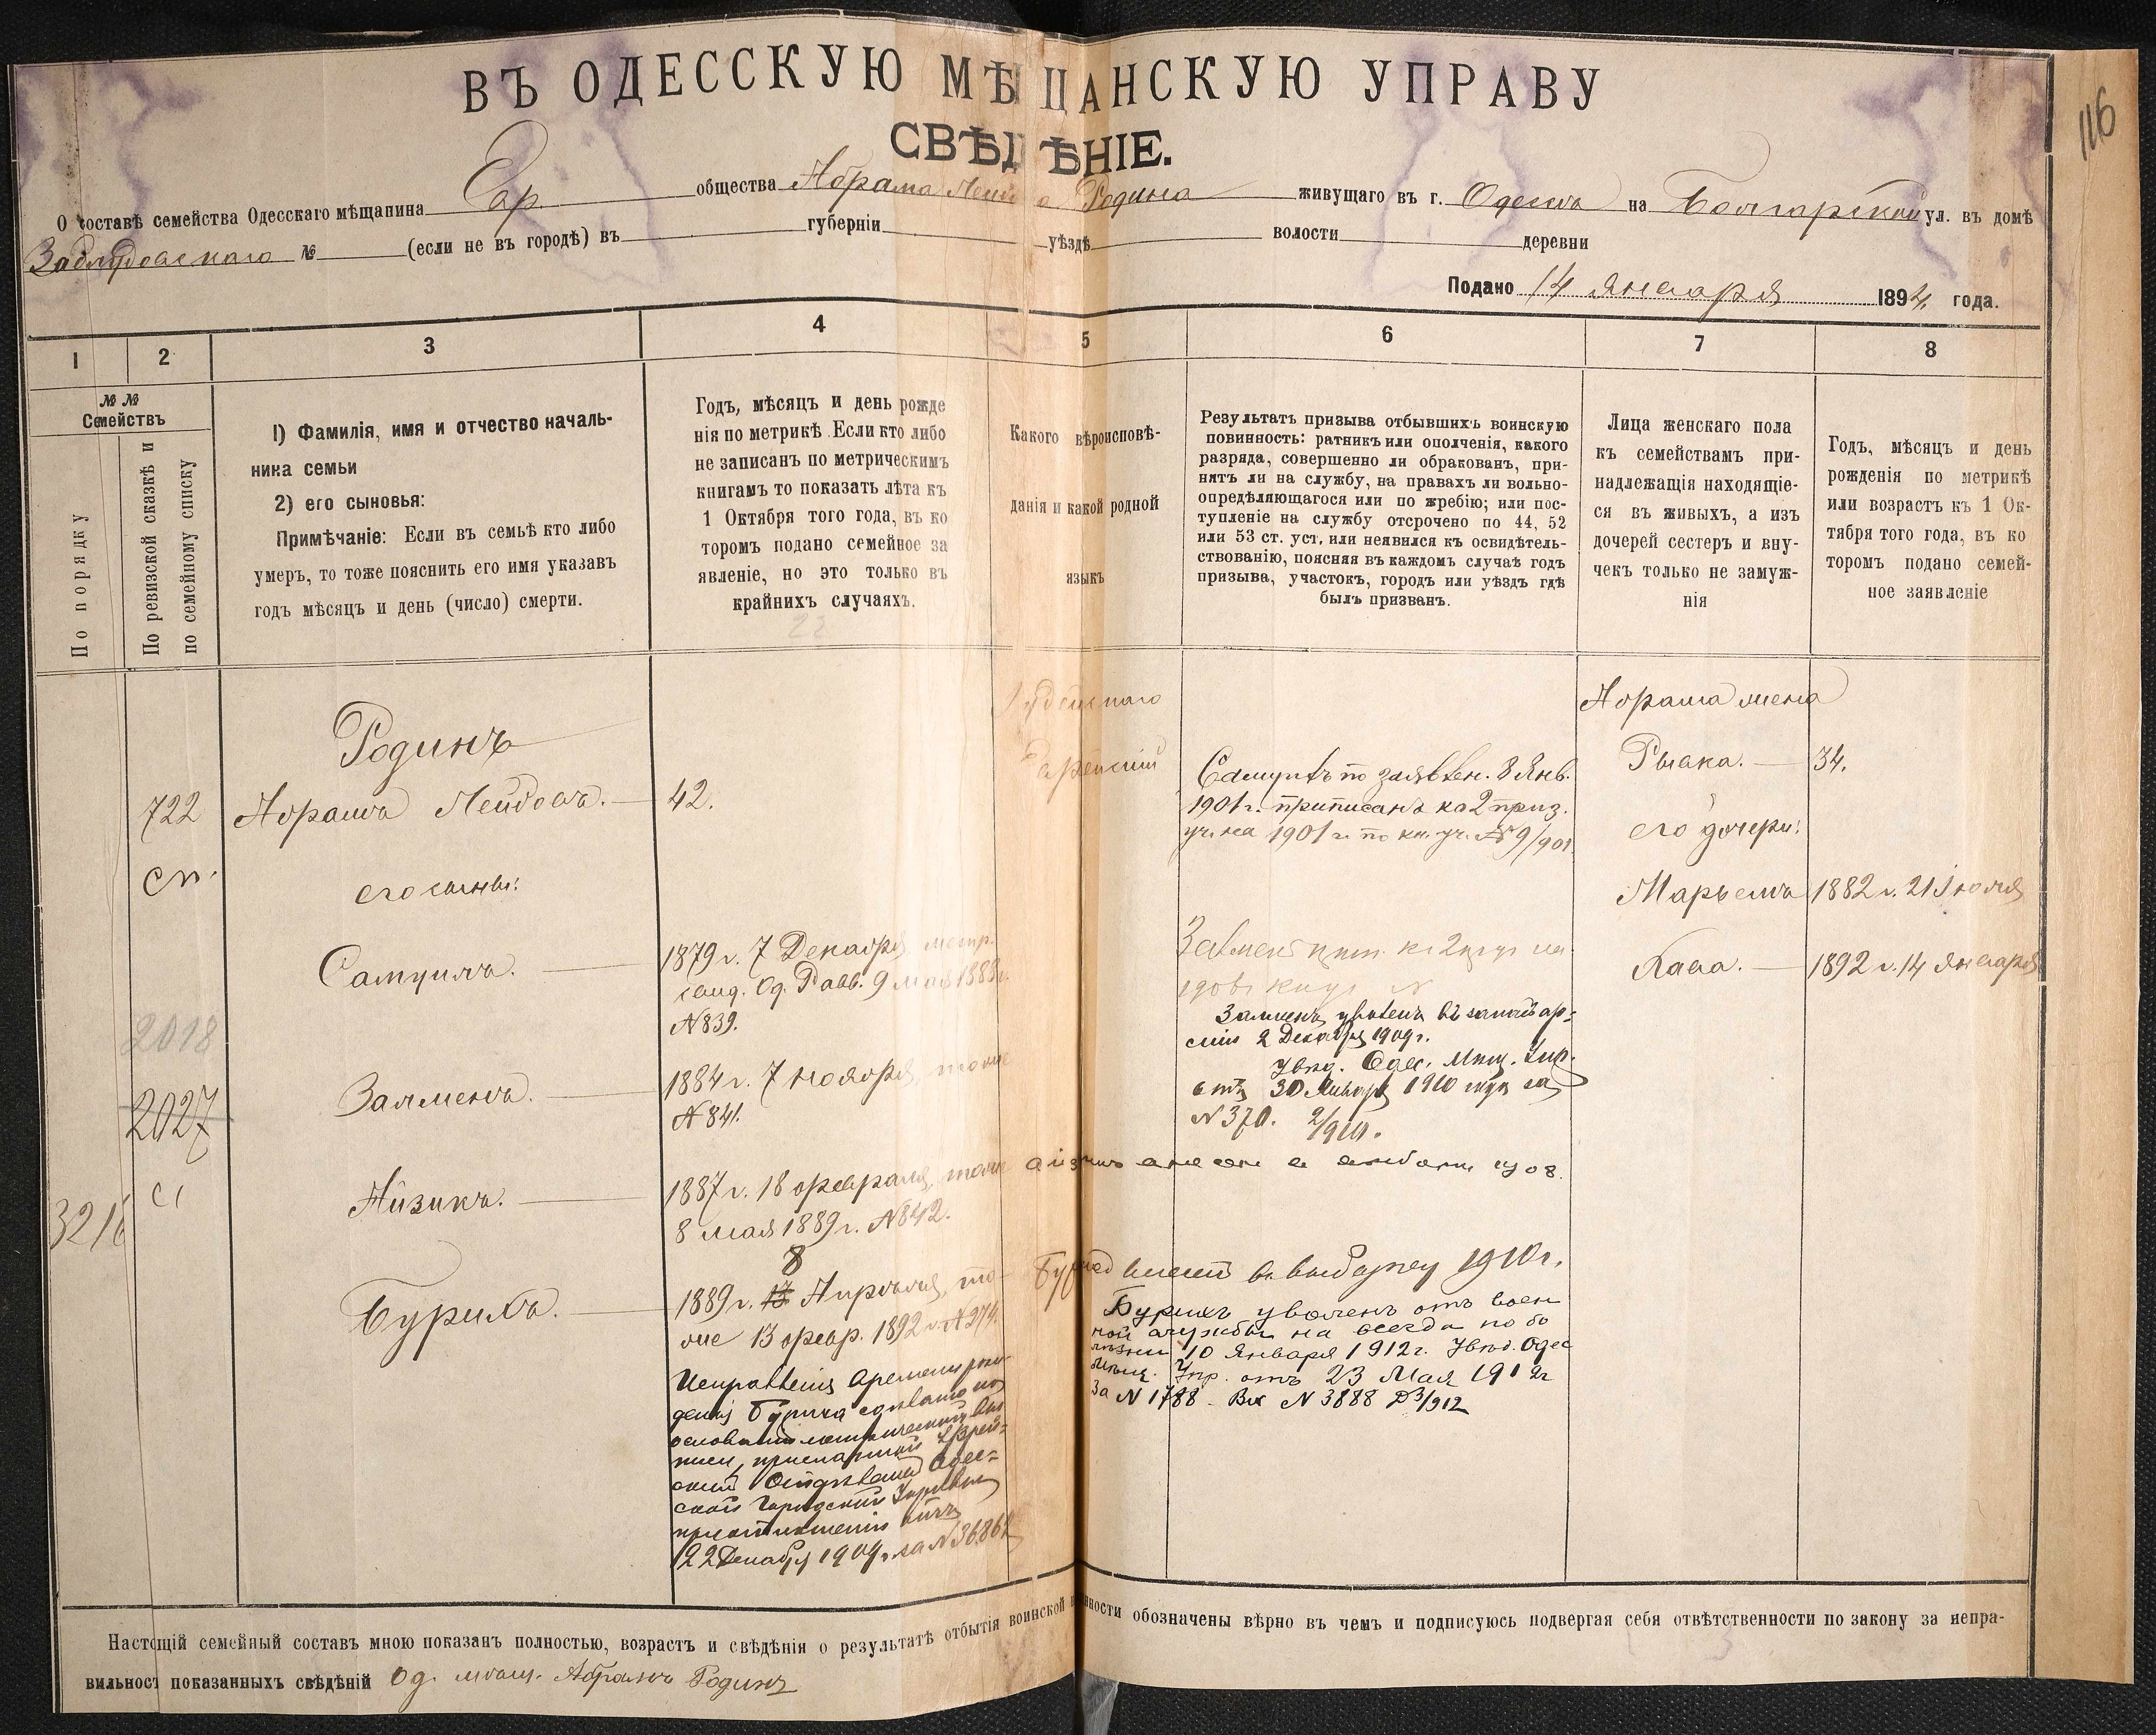 116
ВЪ ОДЕССКУЮ МѢЩАНСКУЮ УПРАВУ
СВѢДѢНІЕ.
О составѣ семейства Одесскаго мѣщанина Евр общества Абрама Лейбова Родина живущаго въ г. Одессѣ на Болгарской ул. въ домѣ
Заблудовскаго № (если не въ городѣ) въ губерніи уѣздѣ волости деревни
Подано 14 Января 1894 года.
1 2 3 4 5 6 7 8
№ №
Семействъ
По порядку
По ревизской сказкѣ и
по семейному списку
1) Фамилія, имя и отчество началь-
ника семьи
2) его сыновья:
Примѣчаніе: Если въ семьѣ кто либо
умеръ, то тоже пояснить его имя указавъ
годъ мѣсяцъ и день (число) смерти.
Годъ, мѣсяцъ и день рожде
нія по метрикѣ. Если кто либо
не записанъ по метрическимъ
книгамъ то показать лѣта къ
1 Октября того года, въ ко
торомъ подано семейное за
явленіе, но это только въ
крайнихъ случаяхъ.
22
Какого вѣроисповѣ-
данія и какой родной
языкъ
Результатъ призыва отбывшихъ воинскую
повинность: ратникъ или ополченія, какого
разряда, совершенно ли обракованъ, при-
нятъ ли на службу, на правахъ ли вольно-
опредѣляющагося или по жребію; или пос-
тупленіе на службу отсрочено по 44, 52
или 53 ст. уст. или неявился къ освидѣтель-
ствованію, поясняя въ каждомъ случаѣ годъ
призыва, участокъ, городъ или уѣздъ гдѣ
былъ призванъ.
Лица женскаго пола
къ семействамъ при-
надлежащія находящіе-
ся въ живыхъ, а изъ
дочерей сестеръ и вну-
чекъ только не замуж-
нія
Годъ, мѣсяцъ и день
рожденія по метрикѣ
или возрастъ къ 1 Ок-
тября того года, въ ко
торомъ подано семей-
ное заявленіе
722
сп.
2018
2027
3216
Родинъ
Абрамъ Лейбовъ.
его сыны:
Самуилъ.
Залменъ.
Айзикъ.
Бурихъ.
42.
1879 г. 7 Декабря, метр.
свид. Од. Равв. 9 мая 1889 г.
№ 839.
1884 г. 7 ноября, тоже
№ 841.
1887 г. 18 февраля, тоже
8 мая 1889 г. № 842.
8
1889 г. 13 Апрѣля, то-
же 13 февр. 1892 г. № 274.
Исправленія времени рож-
денія Бурича сдѣлано на
основаніи метрической вы
писи, присланной Еврей-
скимъ Отдѣломъ Одес-
ской Городской Управы
при отношеніи отъ
22 Декабря 1909 г. за № 36864
Іудейскаго
Еврейскій
Самуилъ по заявлен. 8 Янв.
1901 г. приписанъ ко 2 приз.
уч. на 1901 г. по кн. уч. № 9/901.
Залмен прип. къ 2
Залменъ уволенъ въ запасъ ар-
міи 2 Декабря 1909 г.
Увѣд. Одес. Мѣщ. Упр.
отъ 30 Января 1910 года за
№ 370. 2/910.
Айзикъ 1908.
Бурихъ внесенъ въ выборку 1910 г.
Бурихъ уволенъ отъ воен
ной службы на всегда по бо
лѣзни 10 Января 1912 г. Увѣд. Одес
Мѣщ. Упр. отъ 23 Мая 1912 г
За № 1788 - Вх № 3888 Д 3/912
Абрама жена
Рывка.
его дочери:
Марьемъ
Хава.
34.
1882 г. 21 Іюля
1892 г. 14 Января
Настоящій семейный составъ мною показанъ полностью, возрастъ и свѣдѣнія о результатѣ отбытія воинской повинности обозначены вѣрно въ чемъ и подписуюсь подвергая себя отвѣтственности по закону за непра-
вильность показанныхъ свѣдѣній Од. мѣщ. Абрамъ Родинъ